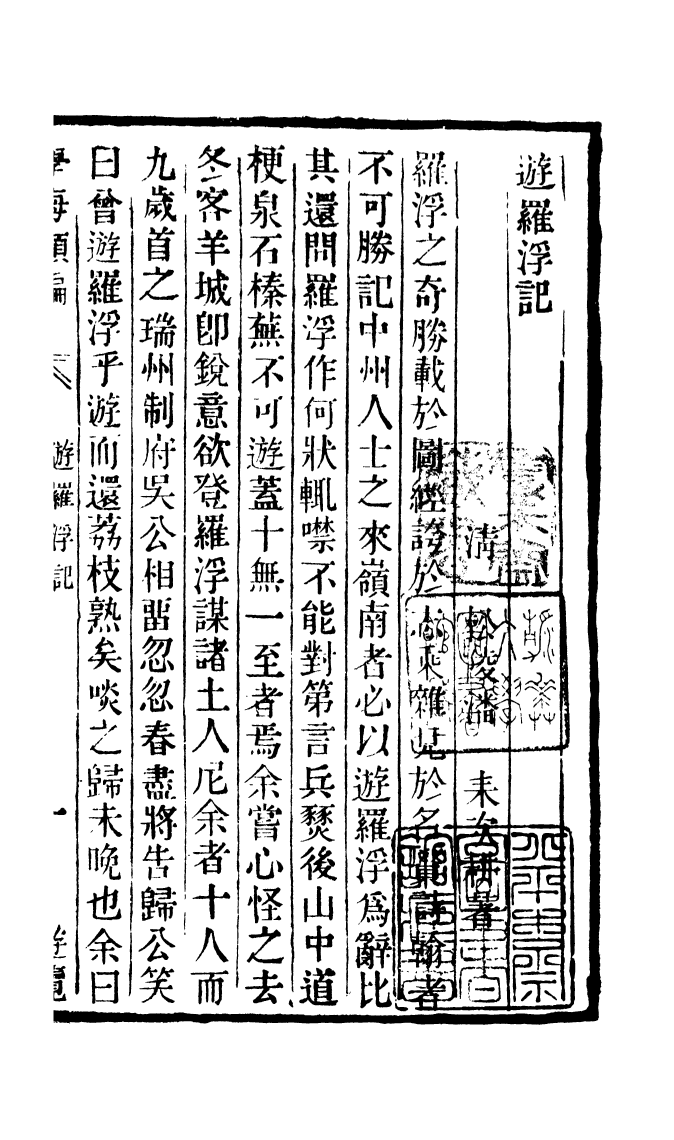 遊羅浮記
清 松陵潘 耒次耕著
羅浮之奇勝載於圖經誇於志乘雜見於名賢詩翰者
不可勝記中州人士之來嶺南者必以遊羅浮爲辭比
其還問羅浮作何狀輒噤不能對第言兵燹後山中道
梗泉石榛蕪不可遊蓋十無一至者焉余嘗心怪之去
冬客羊城卽銳意欲登羅浮謀諸土人尼余者十人而
九歲首之瑞州制府吳公相畱忽忽春盡將告歸公笑
曰曾遊羅浮乎遊而還荔枝熟矣啖之歸未晚也余曰
學海類編 遊羅浮記 一 遊覽